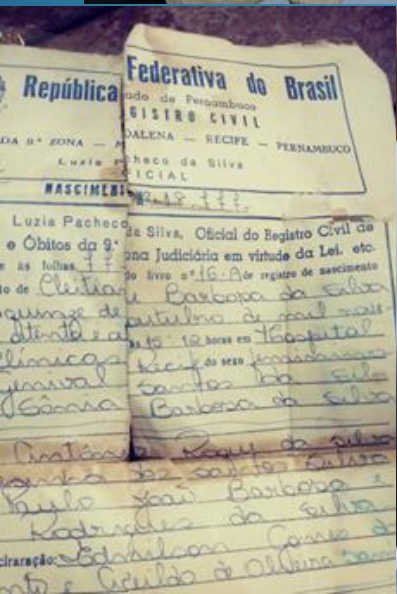 República Federativa do Brasil
do de Pernambuco
GISTRO CIVIL
DA 9ª ZONA — M DALENA — RECIFE — PERNAMBUCO
Luzia Pacheco da Silva
ICIAL
NASCIMEN
Luzia Pacheco da Silva, Oficial do Registro Civil de
e Óbitos da 9ª ona Judiciária em virtude da Lei, etc.
e às folhas 77 do livro nº 16-A de registro de nascimento
to de Barbosa da Silva
quinze de outubro de mil nove-
às 15:12 horas em Hospital
Clínicas Recif do sexo feminino
Genival Santos da Silv
Sônia Barbosa da Silva
Roque da Silva
dos Santos Silva
Paulo José Barbosa e
Rodrigues da Silva
claração: Edmilson Gomes d
de Oliveira